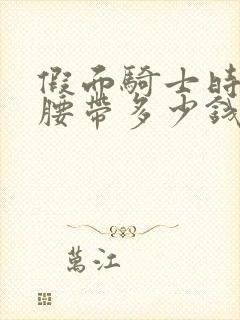 假面騎士時
腰帶多少錢
萬江